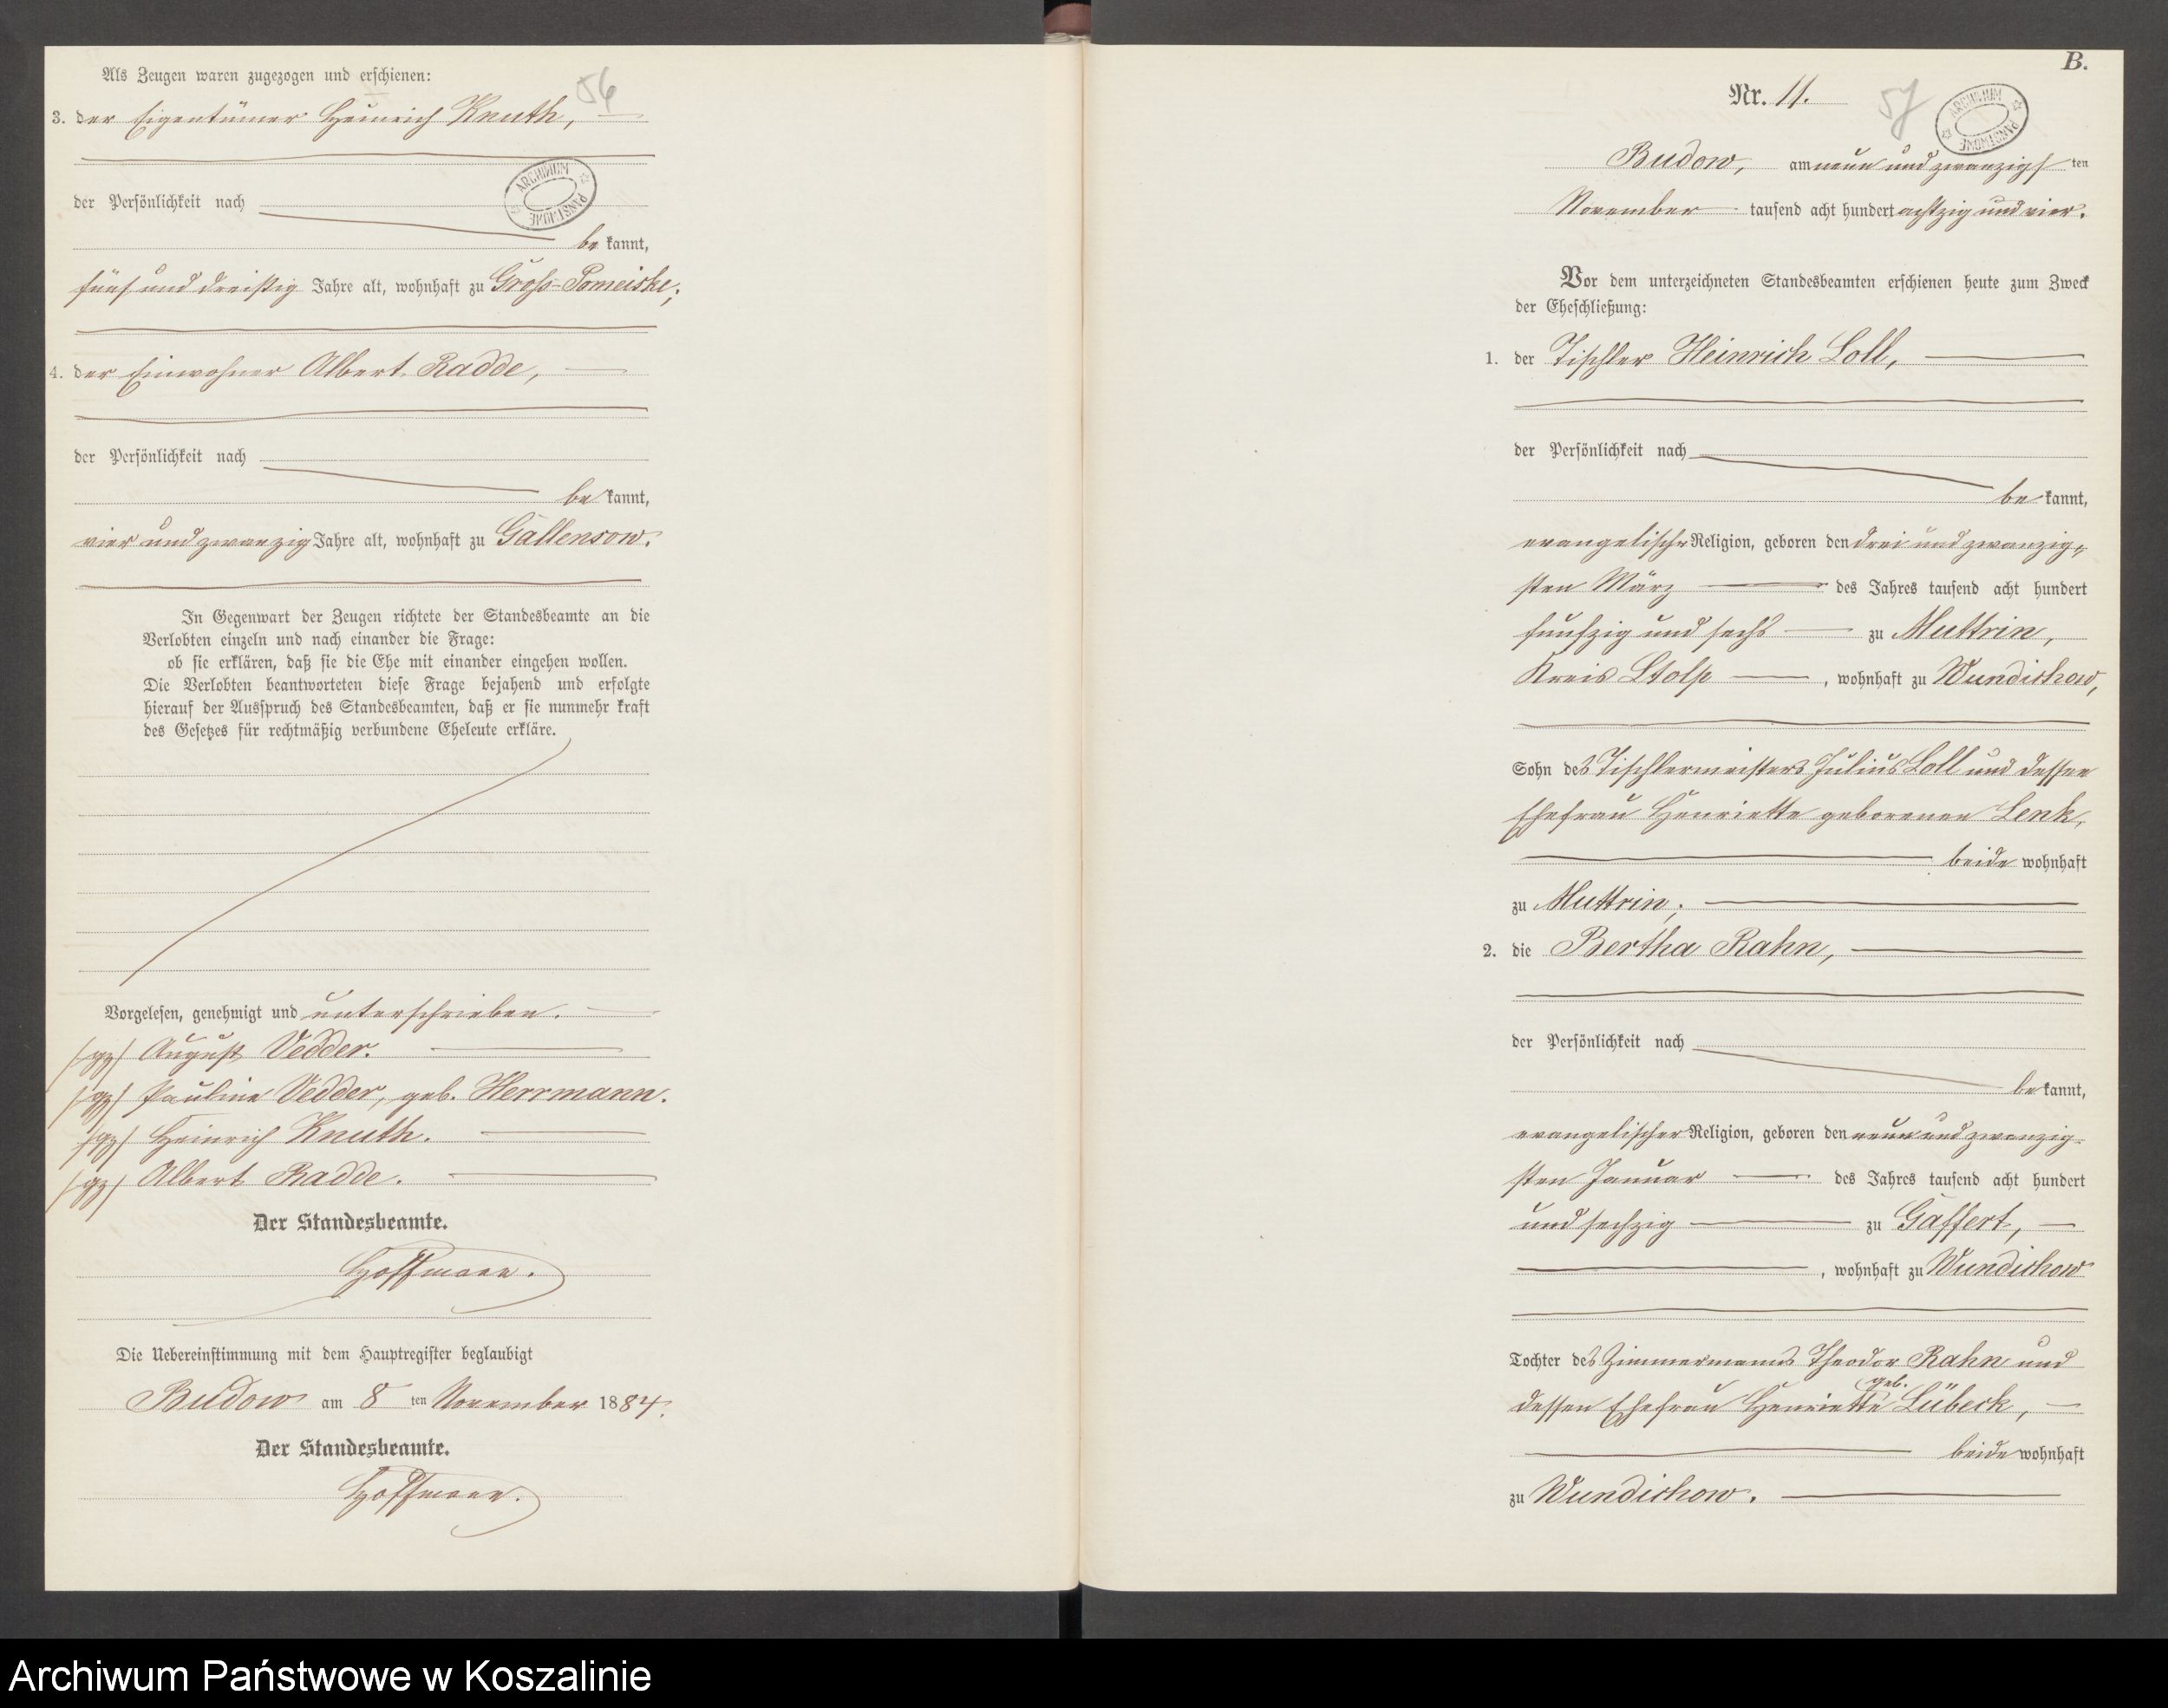 56
Als Zeugen waren zugezogen und erschienen:
3. der Eigentümer Heinrich Knuth,
ARCHIWUM PAŃSTWOWE
der Persönlichkeit nach
be kannt,
fünf und dreißig Jahre alt, wohnhaft zu Groß-Pomeiske;
4. der Einwohner Albert Radde,
der Persönlichkeit nach
be kannt,
vier und zwanzig Jahre alt, wohnhaft zu Gallensow.
In Gegenwart der Zeugen richtete der Standesbeamte an die
Verlobten einzeln und nach einander die Frage:
ob sie erklären, daß sie die Ehe mit einander eingehen wollen.
Die Verlobten beantworteten diese Frage bejahend und erfolgte
hierauf der Ausspruch des Standesbeamten, daß er sie nunmehr kraft
des Gesetzes für rechtmäßig verbundene Eheleute erkläre.
Vorgelesen, genehmigt und unterschrieben.
/gz/ August Vedder.
/gz/ Pauline Vedder, geb. Herrmann.
/gz/ Heinrich Knuth.
/gz/ Albert Radde.
Der Standesbeamte.
Hoffmann.
Die Uebereinstimmung mit dem Hauptregister beglaubigt
Budow am 8 ten November 1884.
Der Standesbeamte.
Hoffmann.
B.
Nr. 11.
57
ARCHIWUM PAŃSTWOWE
Budow, am neun und zwanzigs ten
November tausend acht hundert achtzig und vier.
Vor dem unterzeichneten Standesbeamten erschienen heute zum Zweck
der Eheschließung:
1. der Tischler Heinrich Loll,
der Persönlichkeit nach
be kannt,
evangelischer Religion, geboren den drei und zwanzig-
sten März des Jahres tausend acht hundert
fünfzig und sechs zu Muttrin,
Kreis Stolp, wohnhaft zu Wundichow,
Sohn des Tischlermeisters Julius Loll und dessen
Ehefrau Henriette geborenen Lenk,
beide wohnhaft
zu Muttrin;
2. die Bertha Rahn,
der Persönlichkeit nach
be kannt,
evangelischer Religion, geboren den neun und zwanzig-
sten Januar des Jahres tausend acht hundert
und sechzig zu Gaffert,
, wohnhaft zu Wundichow
Tochter des Zimmermanns Theodor Rahn und
dessen Ehefrau Henriette geb. Lübeck,
beide wohnhaft
zu Wundichow.
Archiwum Państwowe w Koszalinie